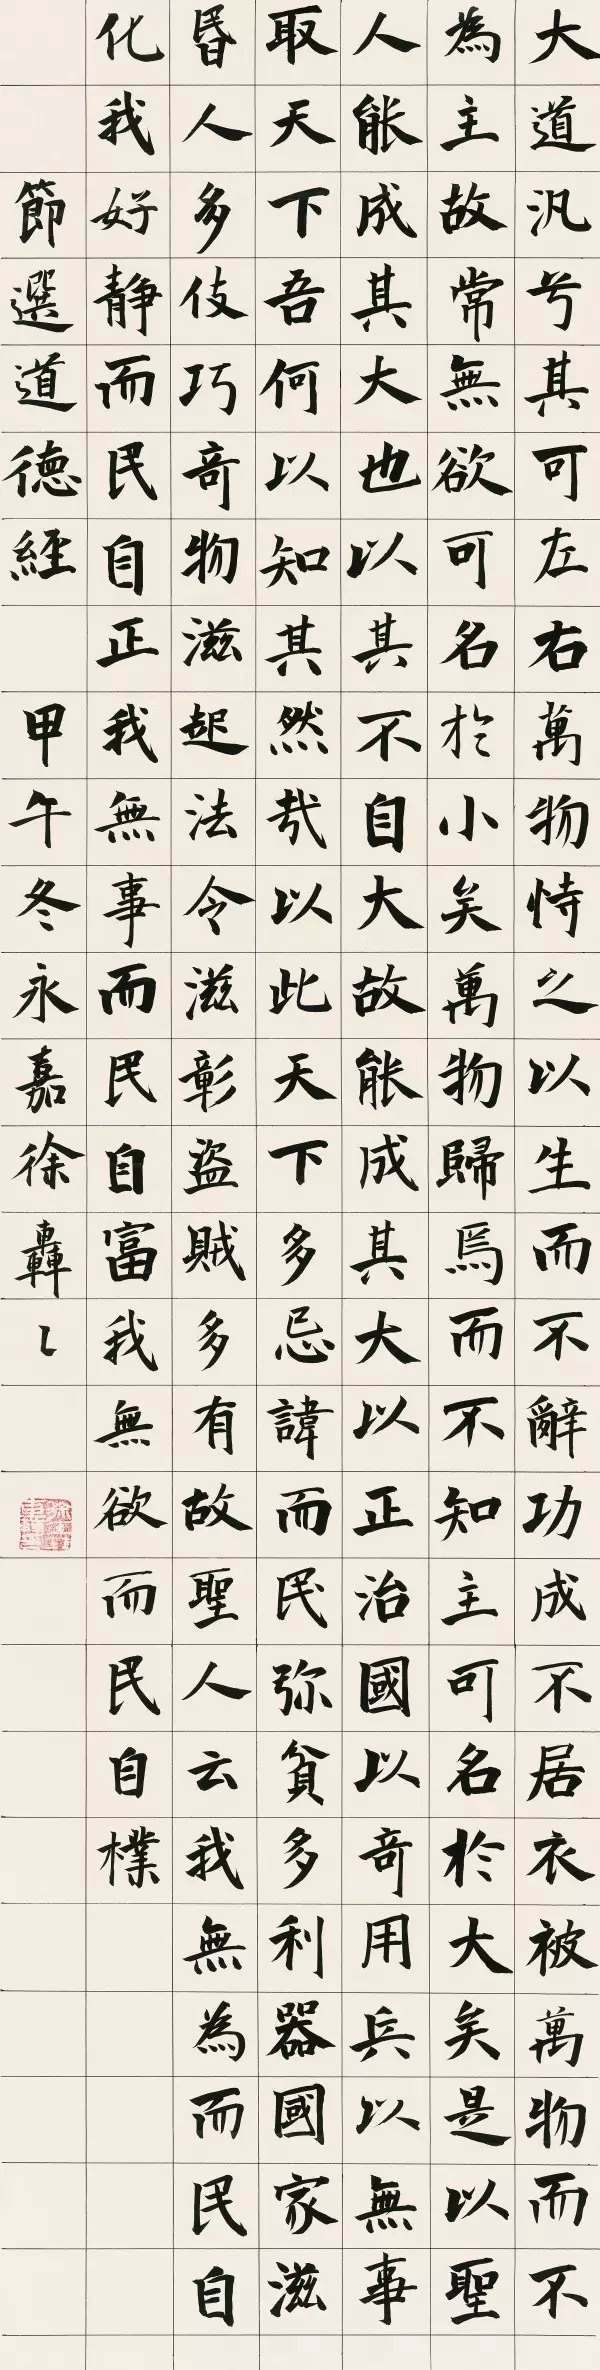 大道汎兮其可左右萬物恃之以生而不辭功成不居衣被萬物而不
為主故常無欲可名於小矣萬物歸焉而不知主可名於大矣是以聖
人能成其大也以其不自大故能成其大以正治國以奇用兵以無事
取天下吾何以知其然哉以此天下多忌諱而民弥貧多利器國家滋
昬人多伎巧奇物滋起法令滋彰盜賊多有故聖人云我無為而民自
化我好靜而民自正我無事而民自富我無欲而民自樸
節選道德經 甲午冬永嘉徐轟〻